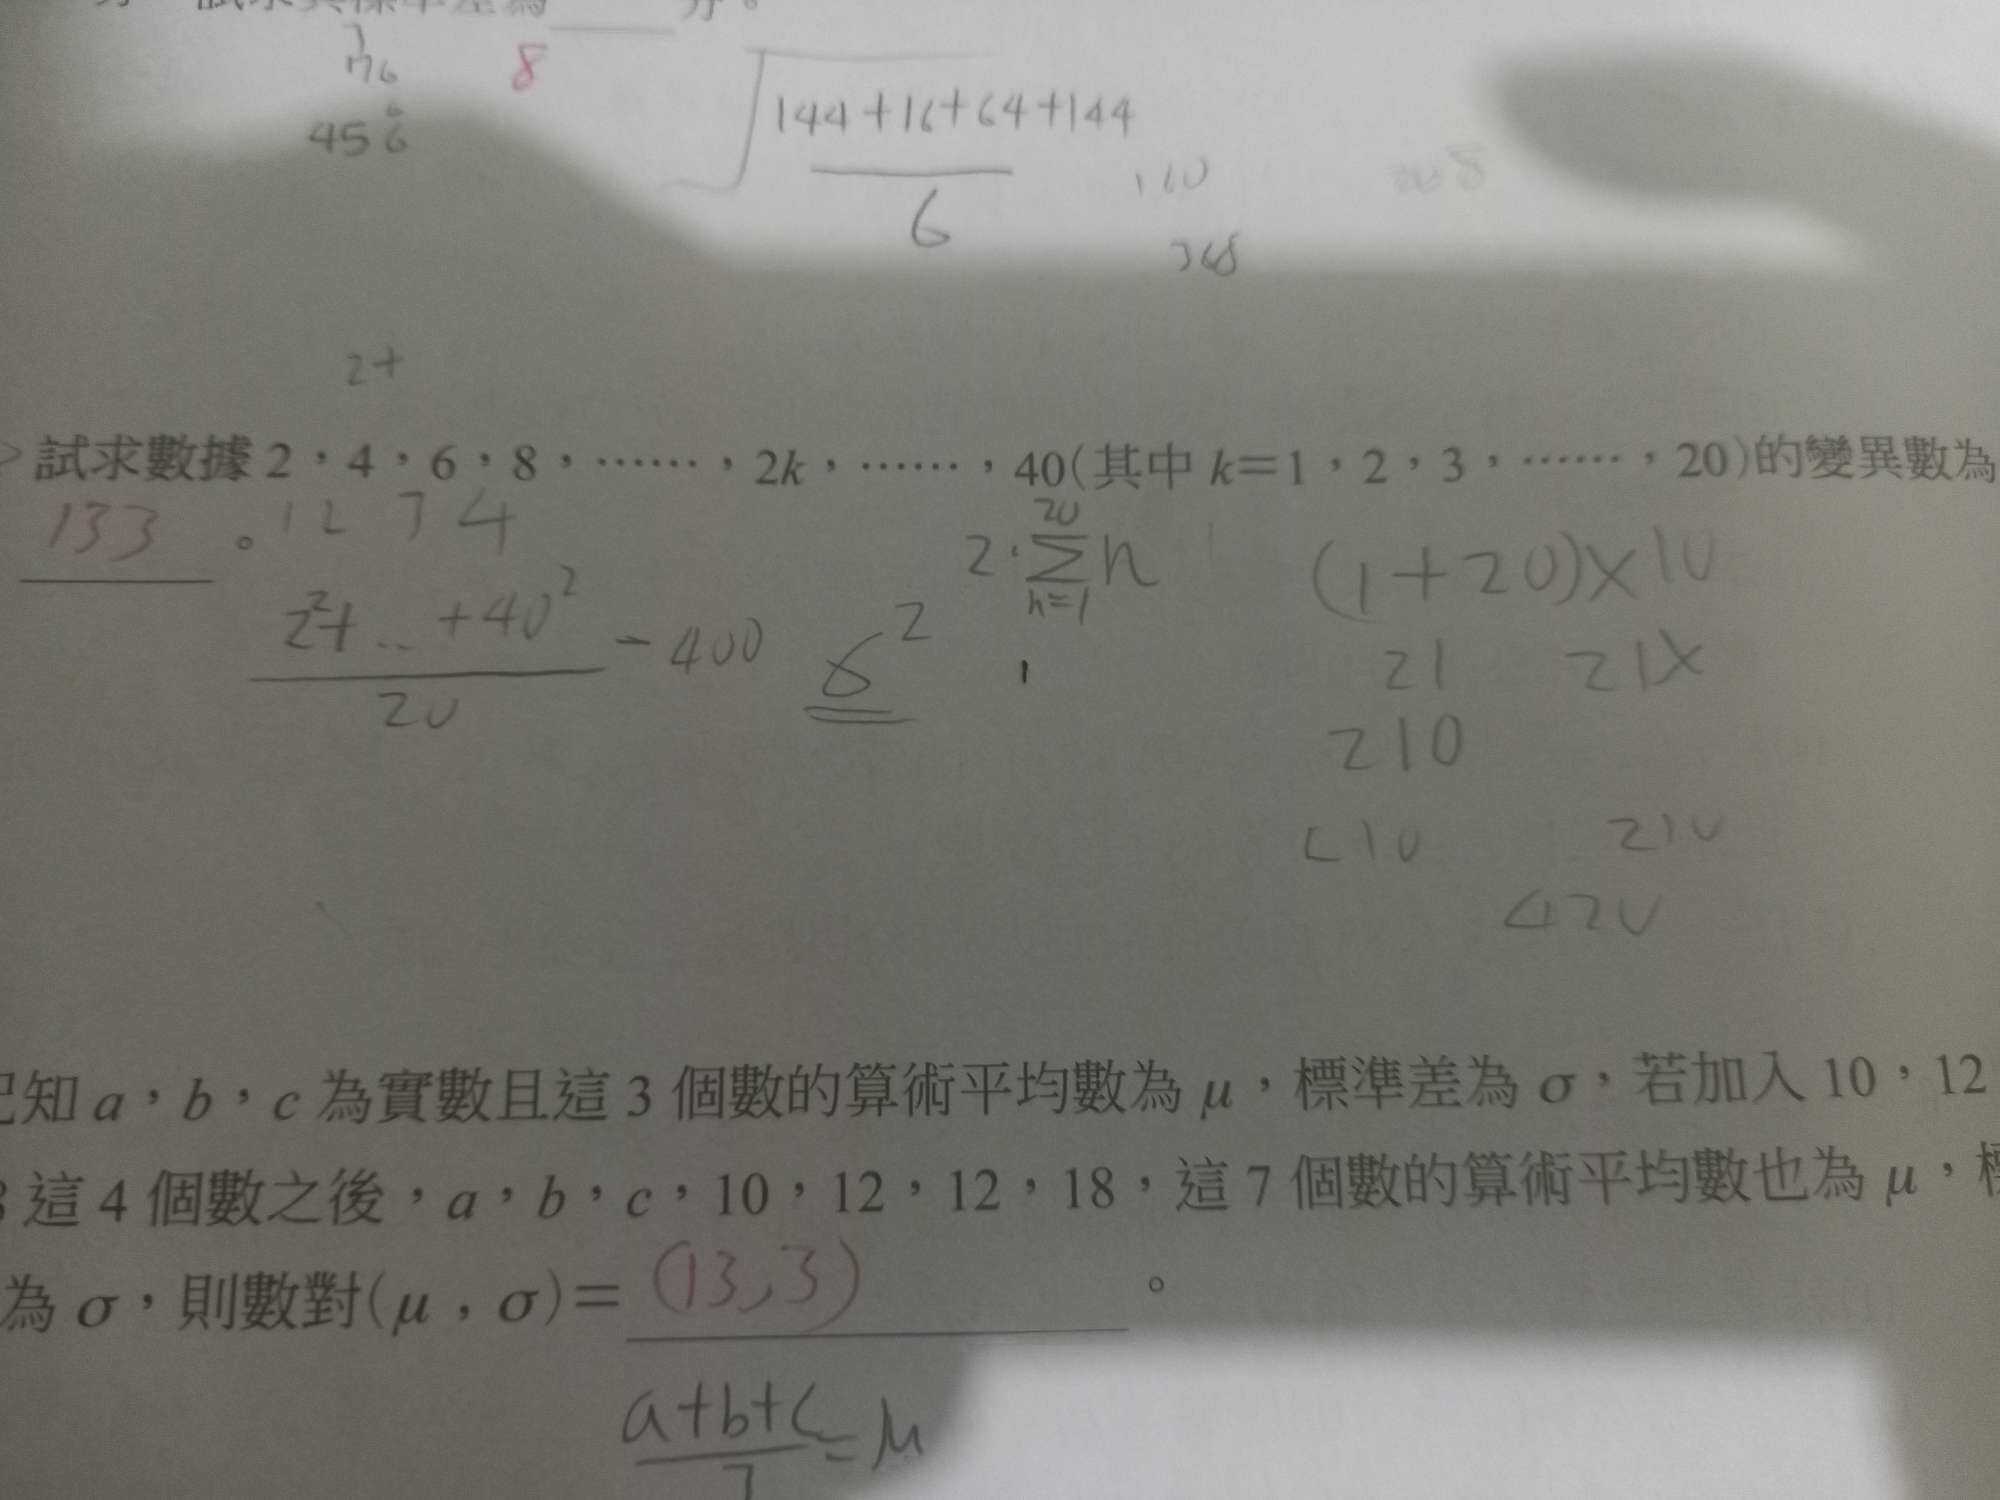 8
144+16+64+144
6
160
368
456
2+
試求數據2，4，6，8，……，2k，……，40(其中k=1，2，3，……，20)的變異數為
133 。
2²+...+40²
20
-400
2·
20
Σn
n=1
(1+20)×10
21 21×
210
210 210
420
已知a，b，c為實數且這3個數的算術平均數為μ，標準差為σ，若加入10，12
8這4個數之後，a，b，c，10，12，12，18，這7個數的算術平均數也為μ，標
為σ，則數對(μ，σ)= (13,3) 。
a+b+c
=μ